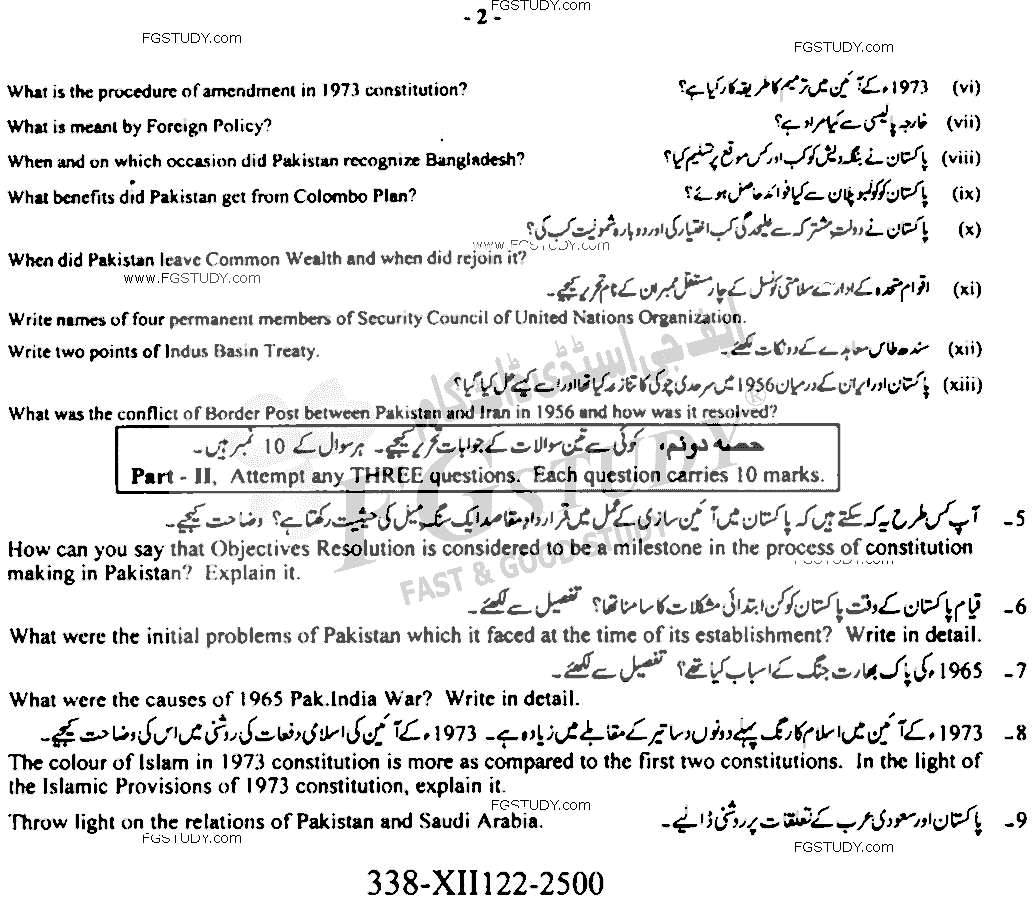 - 2 -
FGSTUDY.com
FGSTUDY.com
FGSTUDY.com
What is the procedure of amendment in 1973 constitution? (vi) 1973ء کے آئین میں ترمیم کا طریقہ کار کیا ہے؟
What is meant by Foreign Policy? (vii) خارجہ پالیسی سے کیا مراد ہے؟
When and on which occasion did Pakistan recognize Bangladesh? (viii) پاکستان نے بنگلہ دیش کو کب اور کس موقع پر تسلیم کیا؟
What benefits did Pakistan get from Colombo Plan? (ix) پاکستان کو کولمبو پلان سے کیا فوائد حاصل ہوئے؟
(x) پاکستان نے دولت مشترکہ سے علیحدگی کب اختیار کی اور دوبارہ شمولیت کب کی؟
www.FGSTUDY.com
When did Pakistan leave Common Wealth and when did rejoin it?
www.FGSTUDY.com
FGSTUDY.com
(xi) اقوام متحدہ کے ادارے سلامتی کونسل کے چار مستقل ممبران کے نام تحریر کیجیے۔
Write names of four permanent members of Security Council of United Nations Organization.
Write two points of Indus Basin Treaty. (xii) سندھ طاس معاہدے کے دو نکات لکھئے۔
(xiii) پاکستان اور ایران کے درمیان 1956 میں سرحدی چوکی کا تنازعہ کیا تھا اور اسے کیسے حل کیا گیا؟
What was the conflict of Border Post between Pakistan and Iran in 1956 and how was it resolved?
حصہ دوئم، کوئی سے تین سوالات کے جوابات تحریر کیجیے۔ ہر سوال کے 10 نمبر ہیں۔
Part - II, Attempt any THREE questions. Each question carries 10 marks.
ایف جی اسٹڈی ڈاٹ کام
FGSTUDY ®
FAST & GOOD STUDY
5۔ آپ کس طرح یہ کہہ سکتے ہیں کہ پاکستان میں آئین سازی کے عمل میں قرارداد مقاصد ایک سنگ میل کی حیثیت رکھتا ہے؟ وضاحت کیجیے۔
How can you say that Objectives Resolution is considered to be a milestone in the process of constitution
making in Pakistan? Explain it.
FGSTUDY.com
6۔ قیام پاکستان کے وقت پاکستان کو کن ابتدائی مشکلات کا سامنا تھا؟ تفصیل سے لکھئے۔
What were the initial problems of Pakistan which it faced at the time of its establishment? Write in detail.
7۔ 1965ء کی پاک بھارت جنگ کے اسباب کیا تھے؟ تفصیل سے لکھئے۔
What were the causes of 1965 Pak.India War? Write in detail.
8۔ 1973ء کے آئین میں اسلام کا رنگ پہلے دونوں دساتیر کے مقابلے میں زیادہ ہے۔ 1973ء کے آئین کی اسلامی دفعات کی روشنی میں اس کی وضاحت کیجیے۔
The colour of Islam in 1973 constitution is more as compared to the first two constitutions. In the light of
the Islamic Provisions of 1973 constitution, explain it.
FGSTUDY.com
Throw light on the relations of Pakistan and Saudi Arabia. 9۔ پاکستان اور سعودی عرب کے تعلقات پر روشنی ڈالیے۔
FGSTUDY.com
FGSTUDY.com
338-XII122-2500